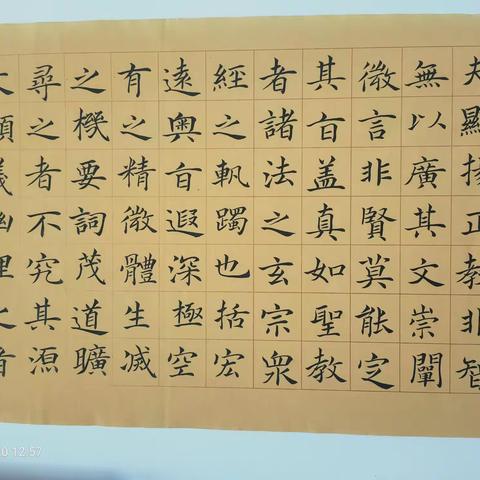 夫顯揚正教非智
無以廣其文崇闡
微言非賢莫能定
其旨盖真如聖教
者諸法之玄宗衆
經之軌躅也括宏
遠奧旨遐深極空
有之精微體生滅
之機要詞茂道曠
尋之者不究其源
12:57